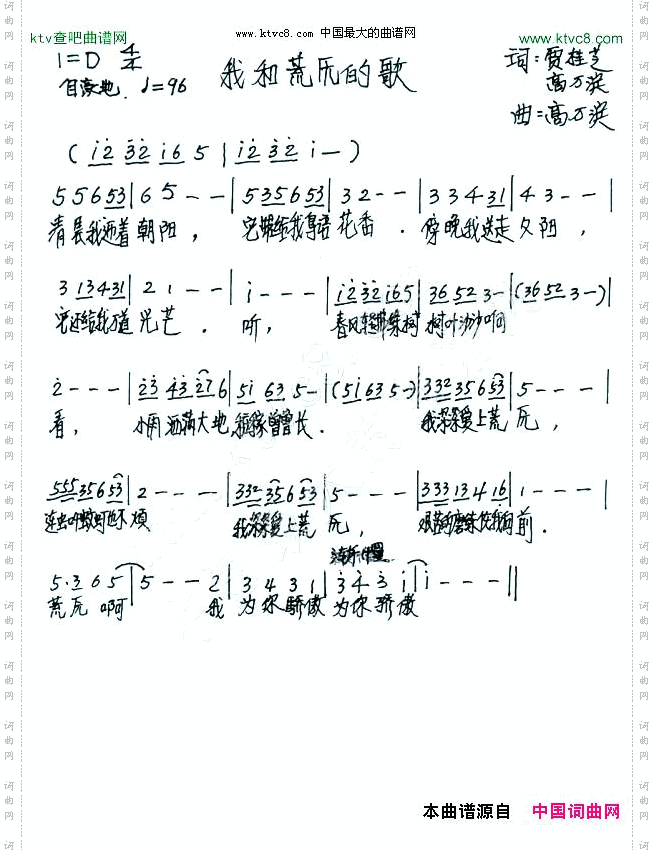 ktv查吧曲谱网
www.ktvc8.com 中国最大的曲谱网
www.ktvc8.com
1=D 4/4
自豪地. ♩=96
我和荒瓦的歌
词:贾桂芝
高万浜
曲:高万浜
(i2 32 i6 5 | i2 32 i—)
5 5 6 53 | 6 5 - - | 5 35 6 53 | 3 2 - - | 3 3 4 31 | 4 3 - - |
清晨我迎着朝阳, 它赠给我鸟语花香. 傍晚我送走夕阳,
3 13 4 31 | 2 1 - - | i - - - | i2 32 i6 5 | 36 52 3 - | (36 52 3 -) |
它还给我道光芒. 听, 春风 树叶沙沙响
2 - - - | 23 43 27 6 | 5i 63 5 - | (5i 63 5 -) | 332 35 6 53 | 5 - - - |
看, 小雨洒满大地 庄稼曾曾长. 我深深爱上荒瓦,
555 35 6 53 | 2 - - - | 332 35 6 53 | 5 - - - | 333 13 4 16 | 1 - - - |
连虫叮蚊咬也不烦 我深深爱上荒瓦, 艰苦的磨练使我向前.
渐慢
5 · 3 6 5 | 5 - - 2 | 3 4 3 1 | 3 4 3 i | i - - - ‖
荒瓦 啊 我为你骄傲 为你骄傲
本曲谱源自 中国词曲网
词曲网